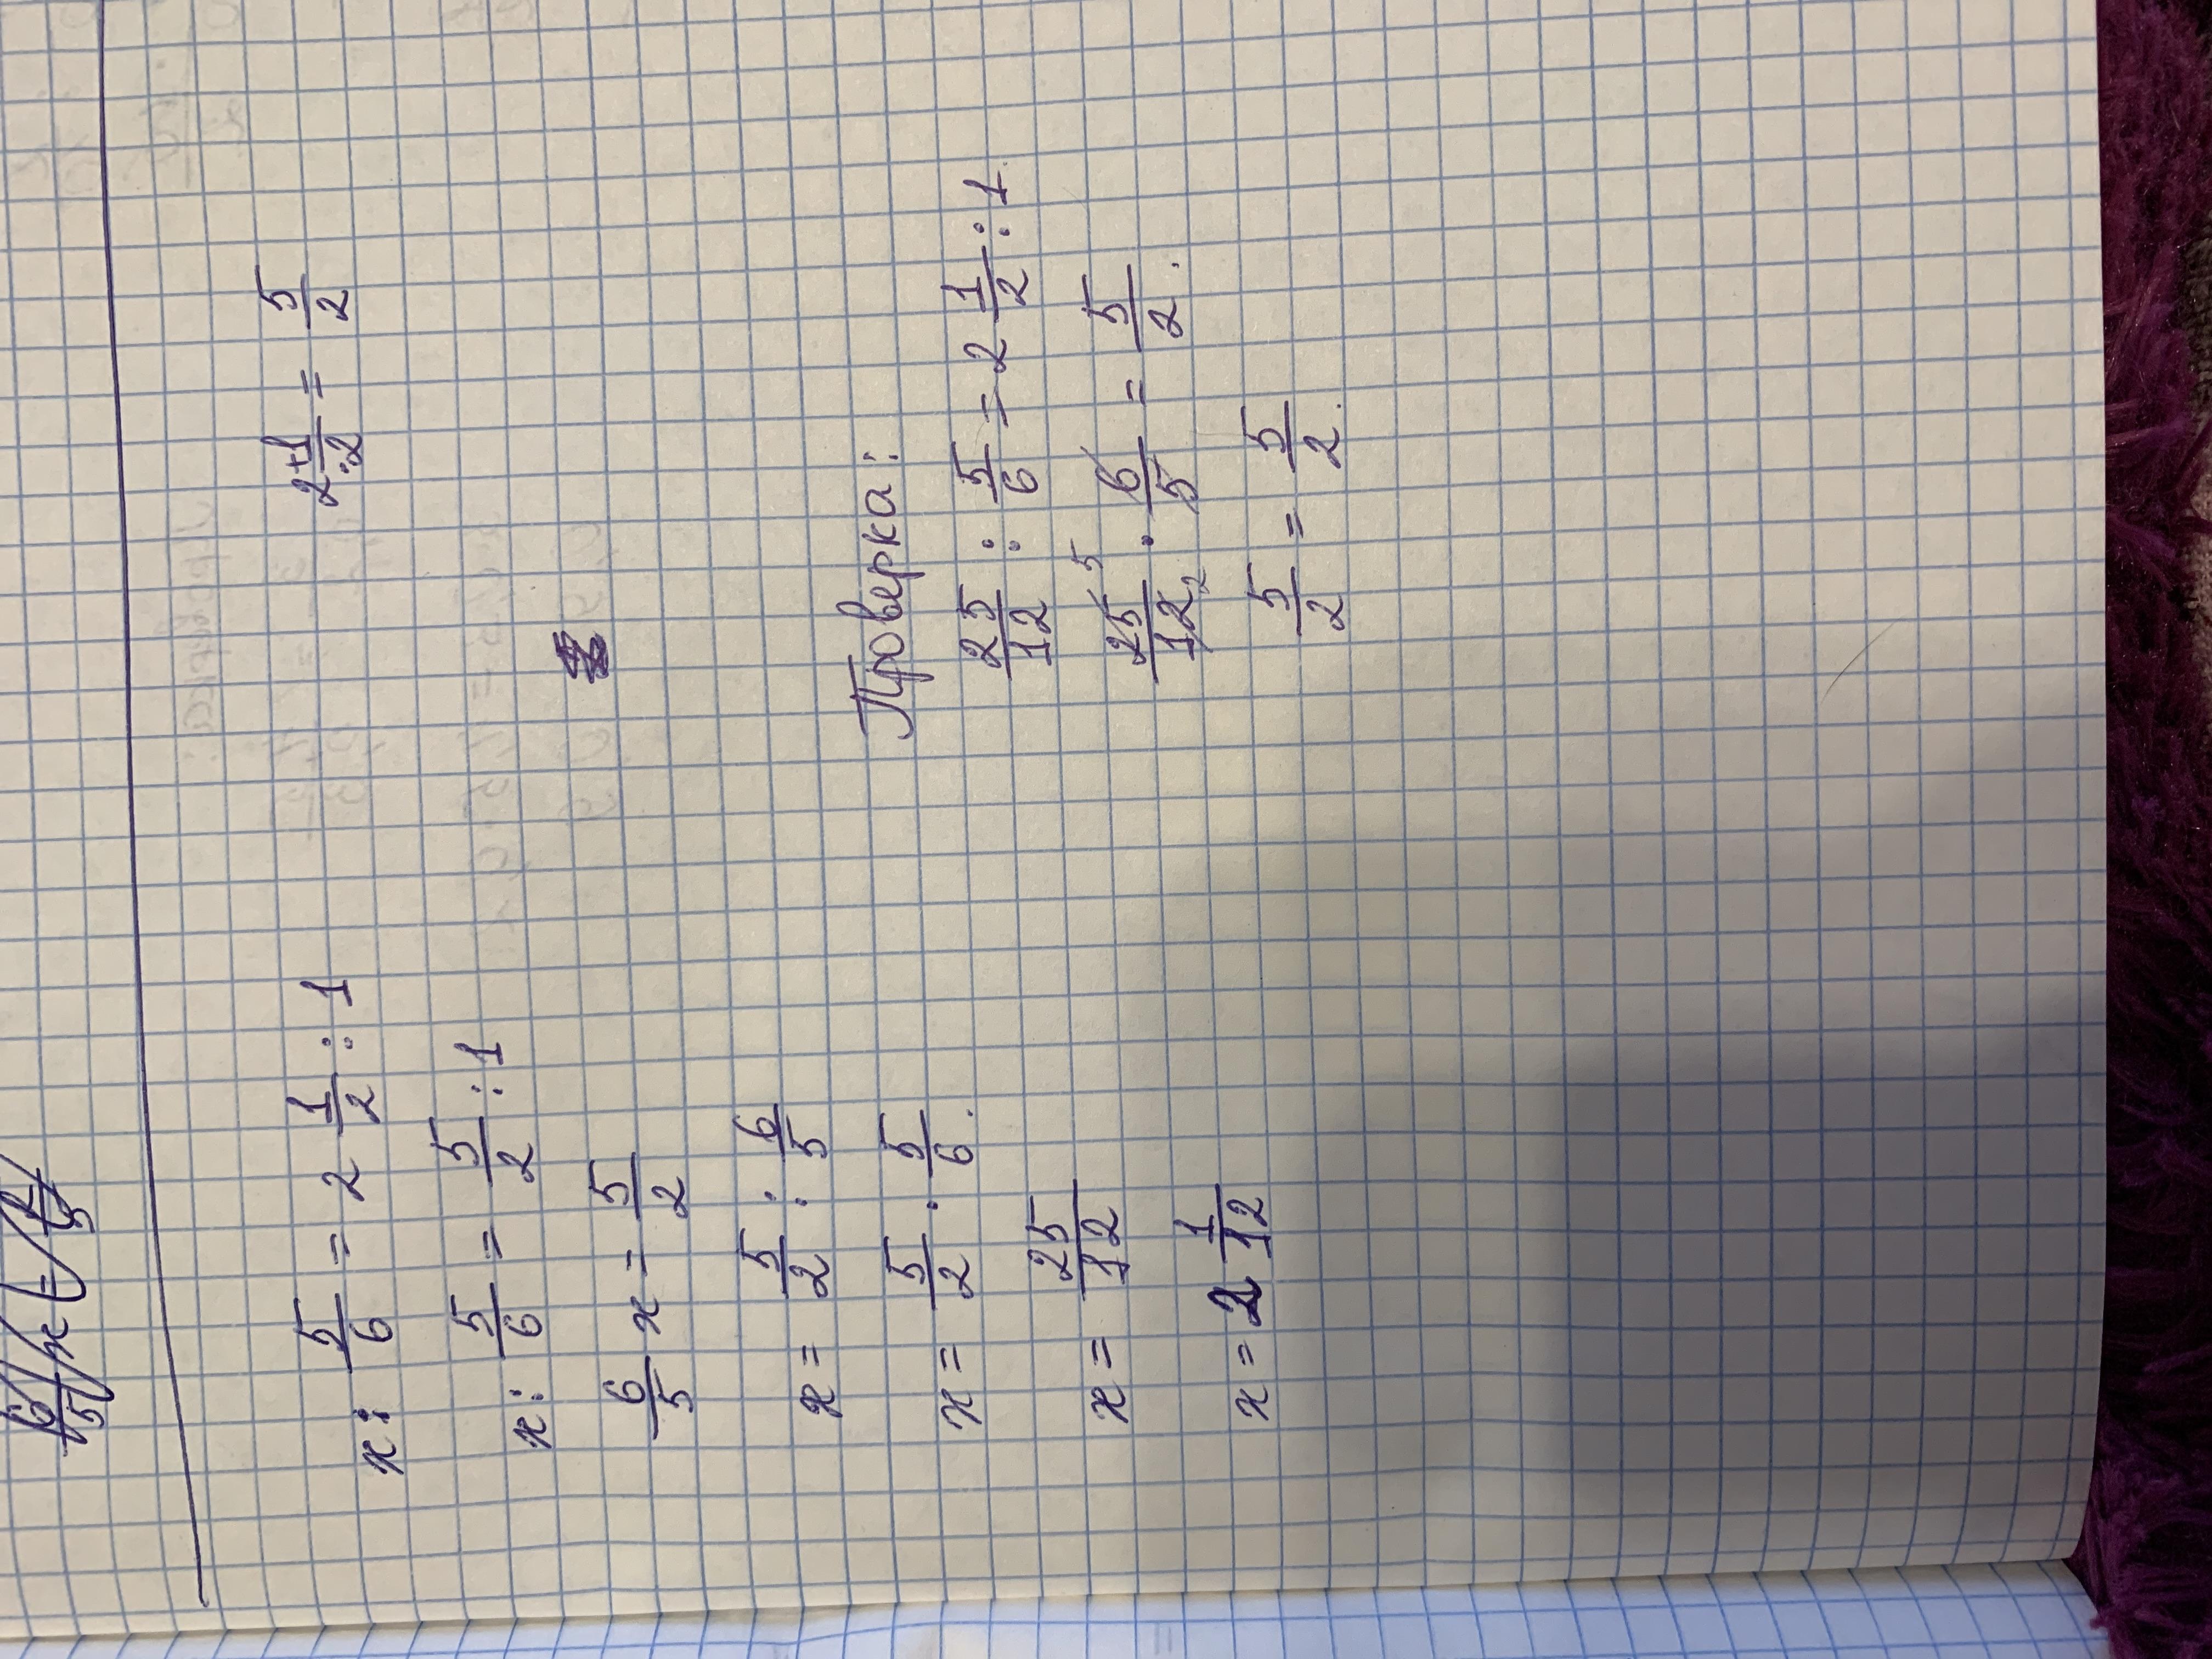 x : 5/6 = 2 1/2 : 1
2 + 1/2 = 5/2
x : 5/6 = 5/2 : 1
6/5 x = 5/2
x = 5/2 : 6/5
x = 5/2 · 5/6.
x = 25/12
x = 2 1/12
Проверка:
25/12 : 5/6 = 2 1/2 : 1
25/12 5 2 · 6/5 = 5/2.
5/2 = 5/2.